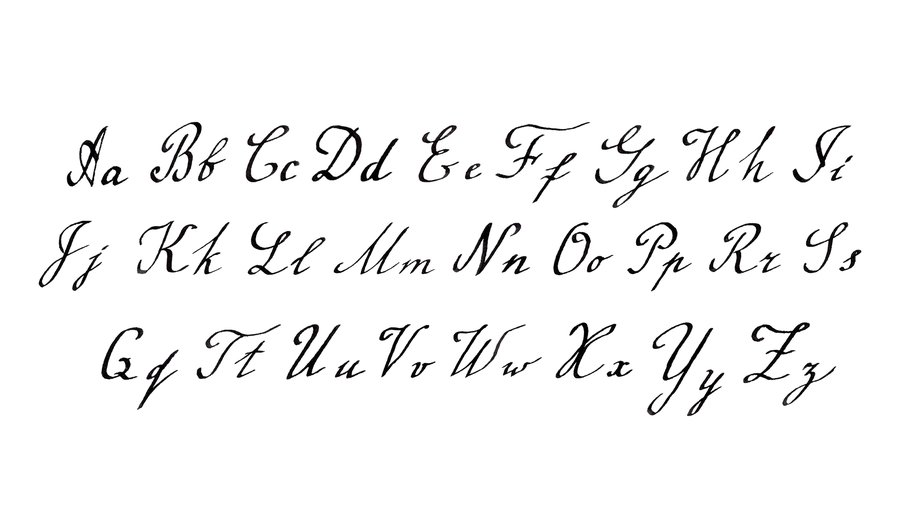 Aa Bb Cc Dd Ee Ff Gg Hh Ii
Jj Kk Ll Mm Nn Oo Pp Rr Ss
Qq Tt Uu Vv Ww Xx Yy Zz